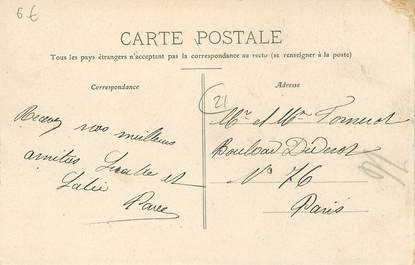 6€
CARTE POSTALE
Tous les pays étrangers n'acceptent pas la correspondance au recto (se renseigner à la poste)
Correspondance
Recevez nos meilleurs
amitiés et
Adresse
21
Mr et Mme
Boulvard Diderot
No 76
Paris